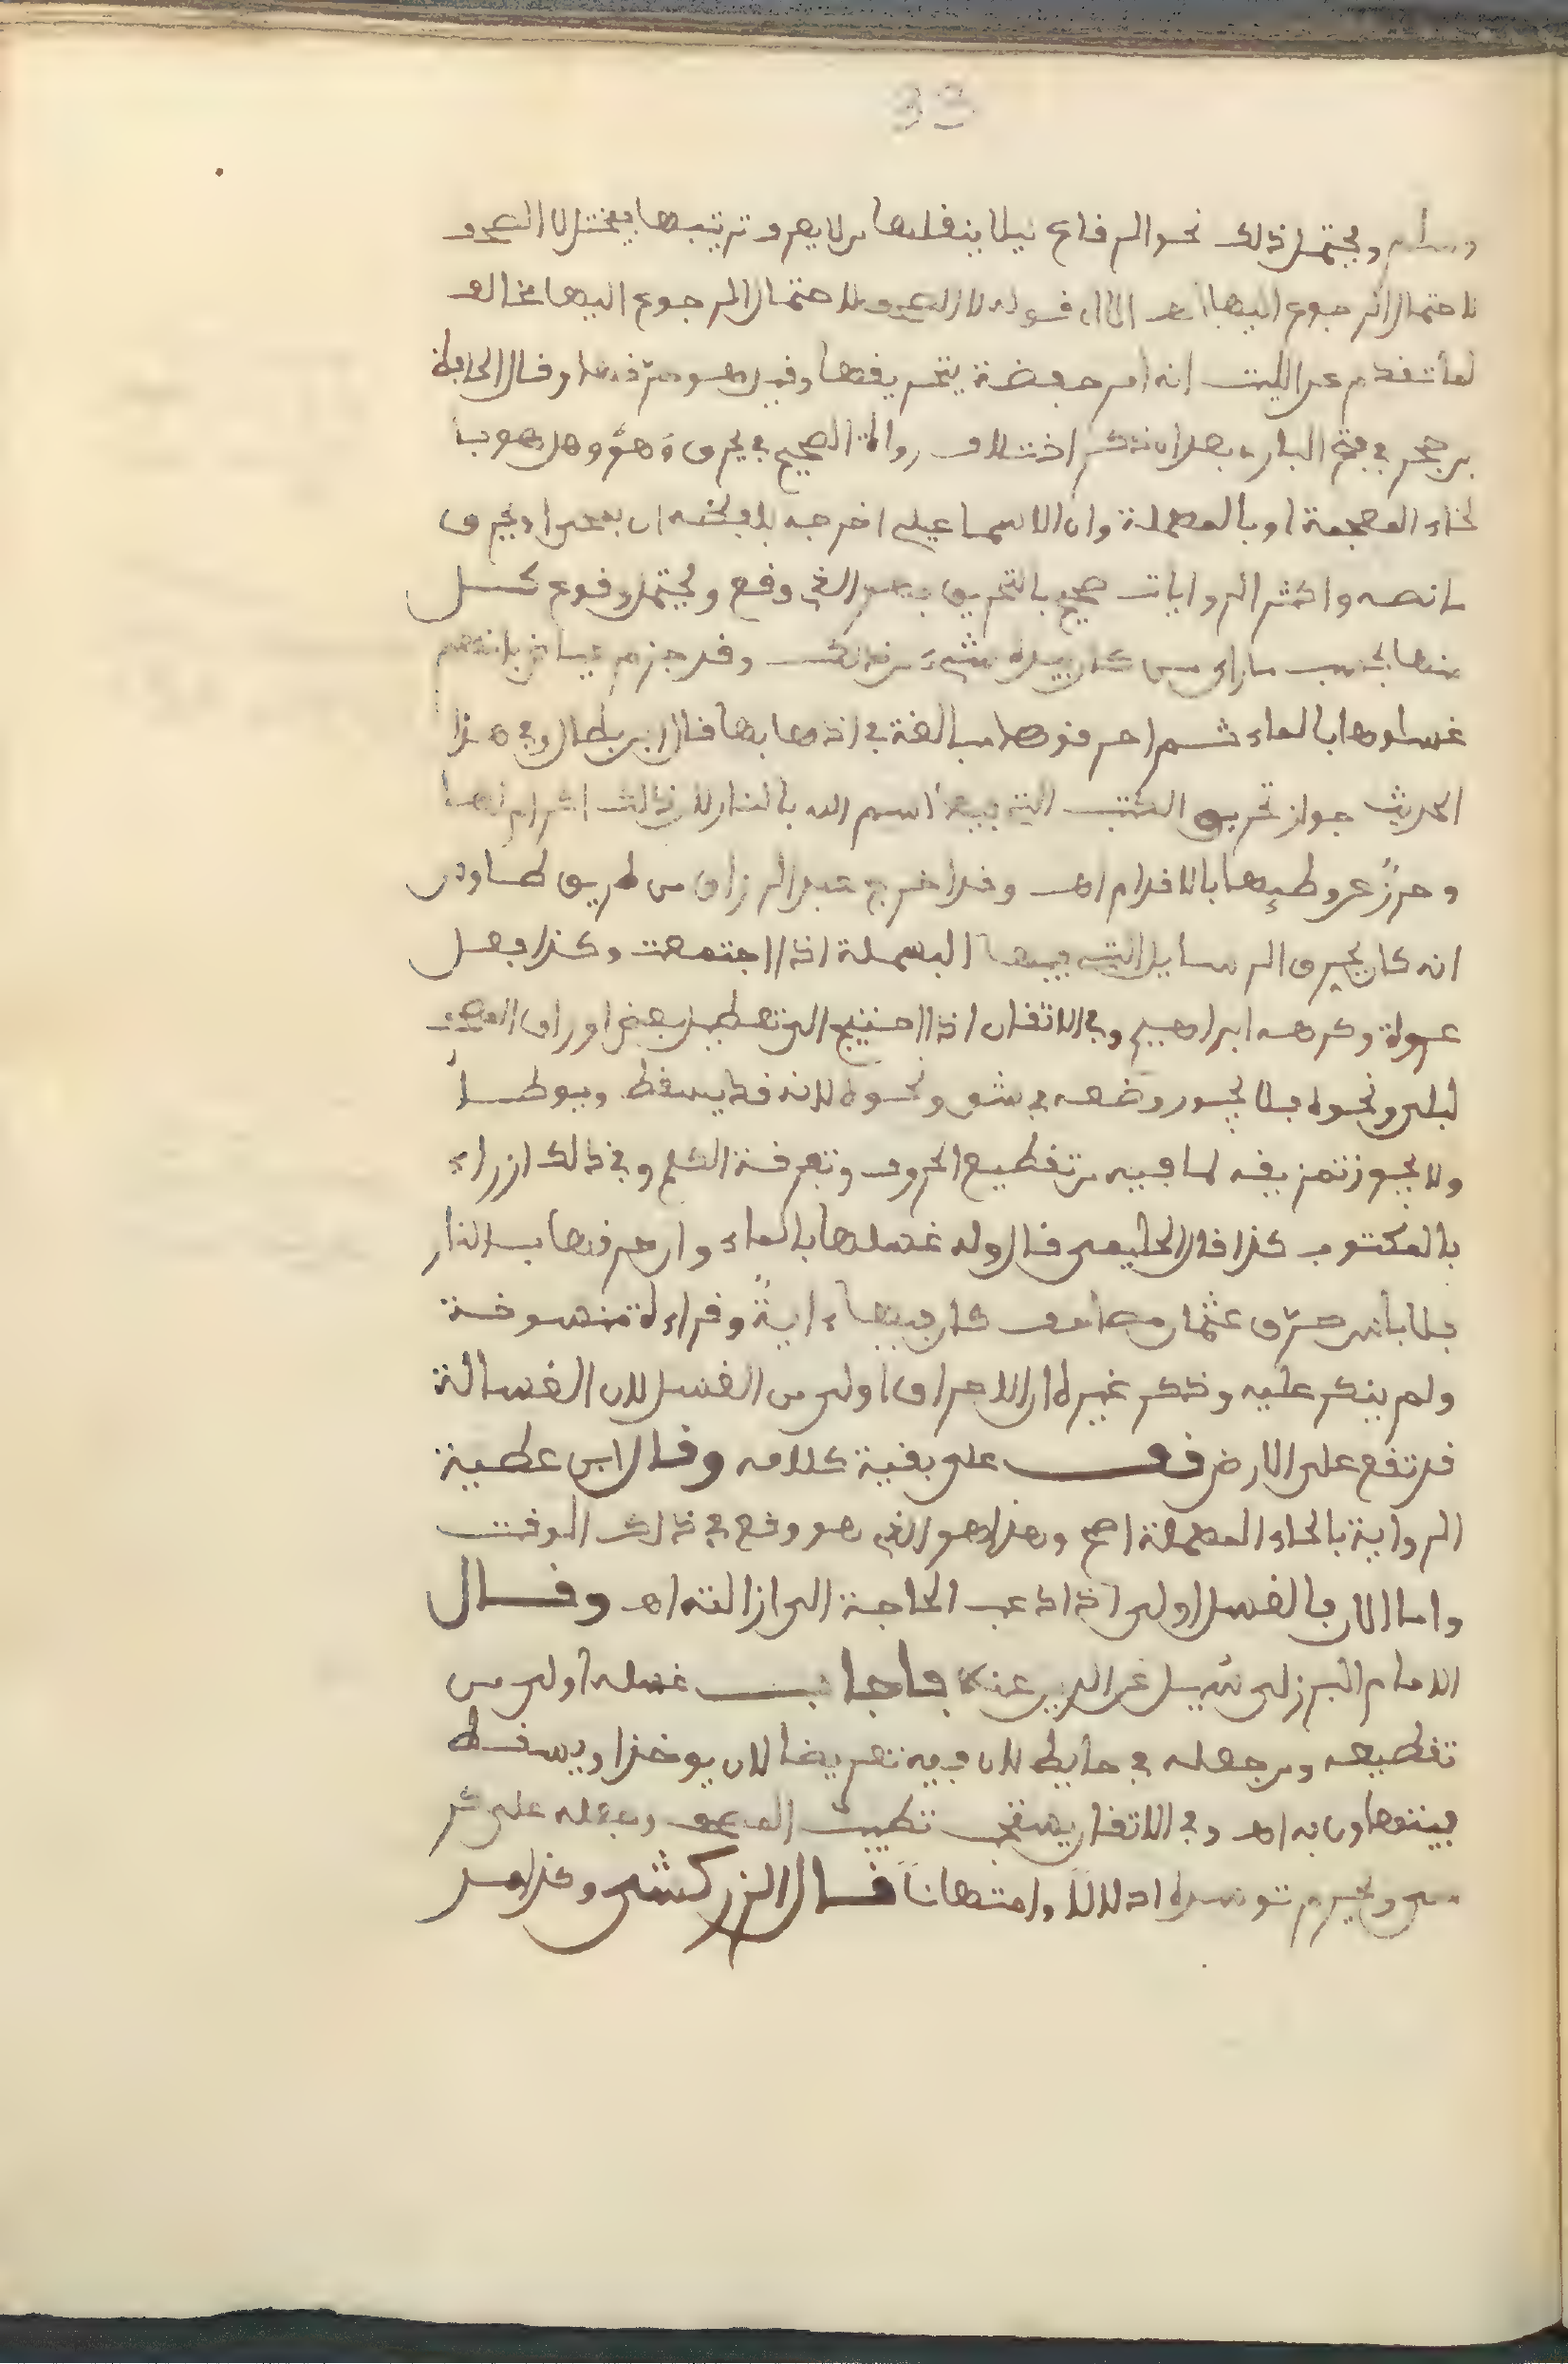 33
وسلم ويحتمل ذلك نحو الرقاع ليلا ينقلها من لا يعرف ترتيبها فيختل لا الصحف
لاحتمال الرجوع إليها اهـ قوله لا الصحف لاحتمال الرجوع إليها مخالف
لما تقدم عن الليث انه امر حفصة بتحريقها وقيل هو حرقها وقال الحافظ
بن حجر في فتح الباري بعد ان ذكر اختلاف رواة الصحيح في يحرق وهل هو با
لخاء المعجمة او بالمهملة وان الاسماعيلي اخرجه بلفظه ان تمحى او تحرق
ما نصه واكثر الروايات صريح بالتحريق فهو الذي وقع ويحتمل وقوع كل
منها بحسب ما راى من كان بيده شيء من ذلك وقد جزم عياض بانهم
غسلوها بالماء ثم احرقوها مبالغة في اذهابها قال ابن بطال وفي هذا
الحديث جواز تحريق الكتب التي فيها اسم الله بالنار لان ذلك اكرام لها
وحرز عن وطيها بالاقدام اهـ وقد اخرج عبد الرزاق من طريق طاوس
انه كان يحرق الرسايل التي فيها البسملة اذا اجتمعت وكذا فعل
عروة وكرهه ابراهيم وفي الاتقان اذا احتيج الى تعطيل بعض اوراق المصحف
لبلى ونحوه فلا يجوز وضعه في شق ونحوه لانه قد يسقط ويوطأ
ولا يجوز تمزيقه لما فيه من تقطيع الحروف وتفرقة الكلم وفي ذلك ازراء
بالمكتوب كذا قال الحليمي قال وله غسلها بالماء وان حرقها بالنار
فلا باس حرق عثمان مصاحف كان فيها ءاية وقراءة منسوخة
ولم ينكر عليه وذكر غيره ان الاحراق اولى من الغسل لان الغسالة
قد تقع على الارض قف على بقية كلامه وقال ابن عطية
الرواية بالحاء المهملة اصح وهذا هو الذي هو وقع في ذلك الوقت
واما الان فالغسل اولى اذا دعت الحاجة الى ازالته اهـ وقال
الامام البرزلي سُيل عز الدين عنه فاجاب غسله اولى من
تقطيعه ومن جعله في حايط لان فيه تعريضا لان يوخذ او يسقط
فيتهاون به اهـ وفي الاتقان يستحب تطييب المصحف وجعله على كر
سي ويحرم توسده اذلالا وامتهانا قال الزركشي وكذا مد